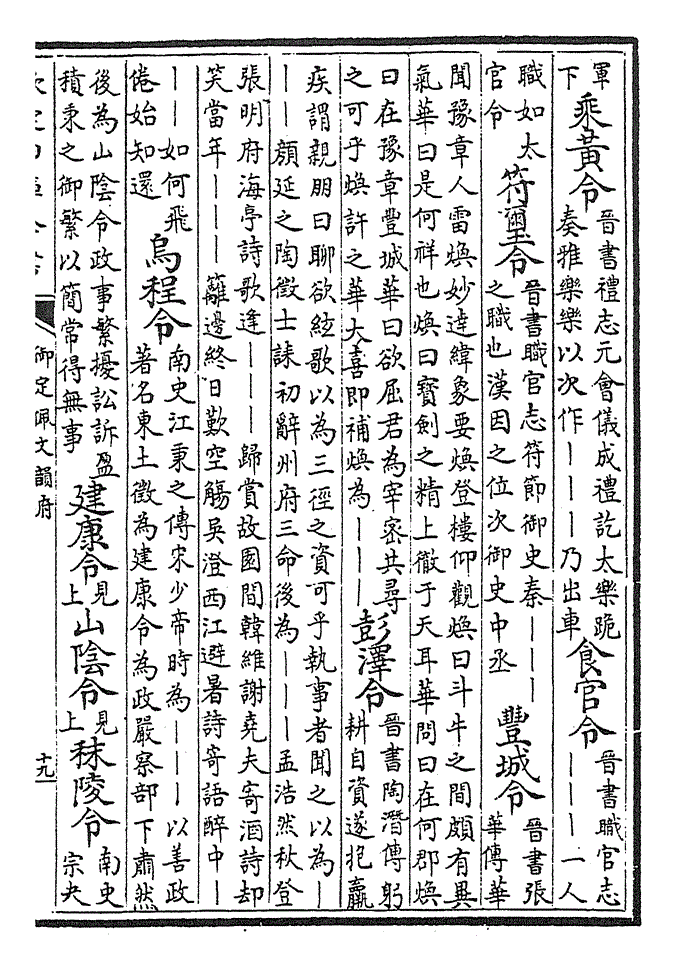 軍
下
乘黃令
晉書禮志元會儀成禮訖太樂跪
奏雅樂樂以次作｜｜｜乃出車
食官令
晉書職官志
｜｜｜一人
職如太
官令
符璽令
晉書職官志符節御史秦｜｜｜
之職也漢因之位次御史中丞
豐城令
晉書張
華傳華
聞豫章人雷煥妙達緯象要煥登樓仰觀煥曰斗牛之間頗有異
氣華曰是何祥也煥曰寶劍之精上徹于天耳華問曰在何郡煥
曰在豫章豐城華曰欲屈君為宰密共尋
之可乎煥許之華大喜即補煥為｜｜｜
彭澤令
晉書陶潛傳躬
耕自資遂抱羸
疾謂親朋曰聊欲絃歌以為三徑之資可乎執事者聞之以為｜
｜｜顔延之陶徵士誄初辭州府三命後為｜｜｜孟浩然秋登
張明府海亭詩歌逢｜｜｜歸賞故園間韓維謝堯夫寄酒詩却
笑當年｜｜｜籬邊終日歎空觴吳澄西江避暑詩寄語醉中｜
｜｜如何飛
倦始知還
烏程令
南史江秉之傳宋少帝時為｜｜｜以善政
著名東土徵為建康令為政嚴察部下肅然
後為山陰令政事繁擾訟訴盈
積秉之御繁以簡常得無事
建康令
見
上
山陰令
見
上
秣陵令
南史
宗夬
欽定四庫全書
御定佩文韻府
十九